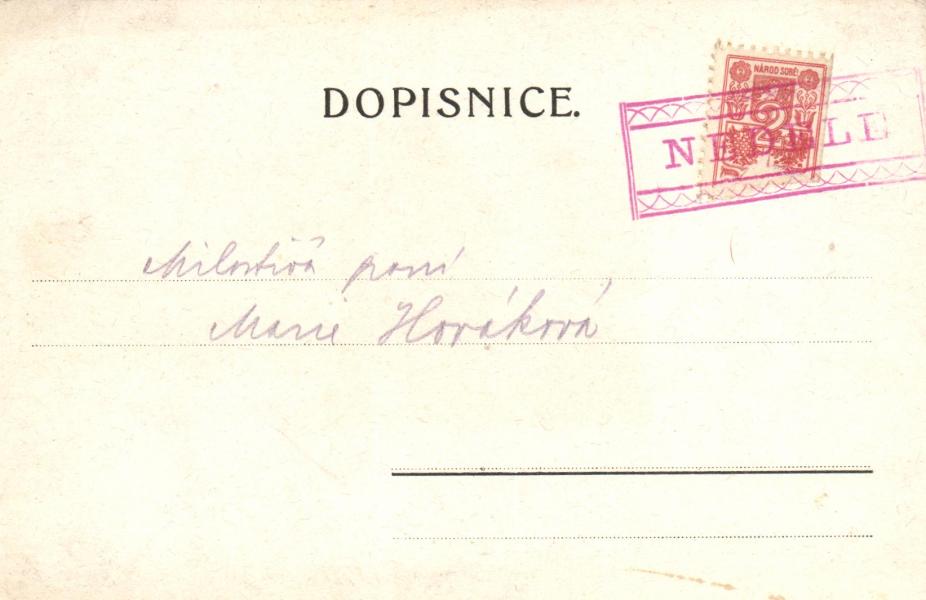 DOPISNICE.
NÁROD SOBĚ
NEDĚLE
Milostivá paní
Marie Horáková